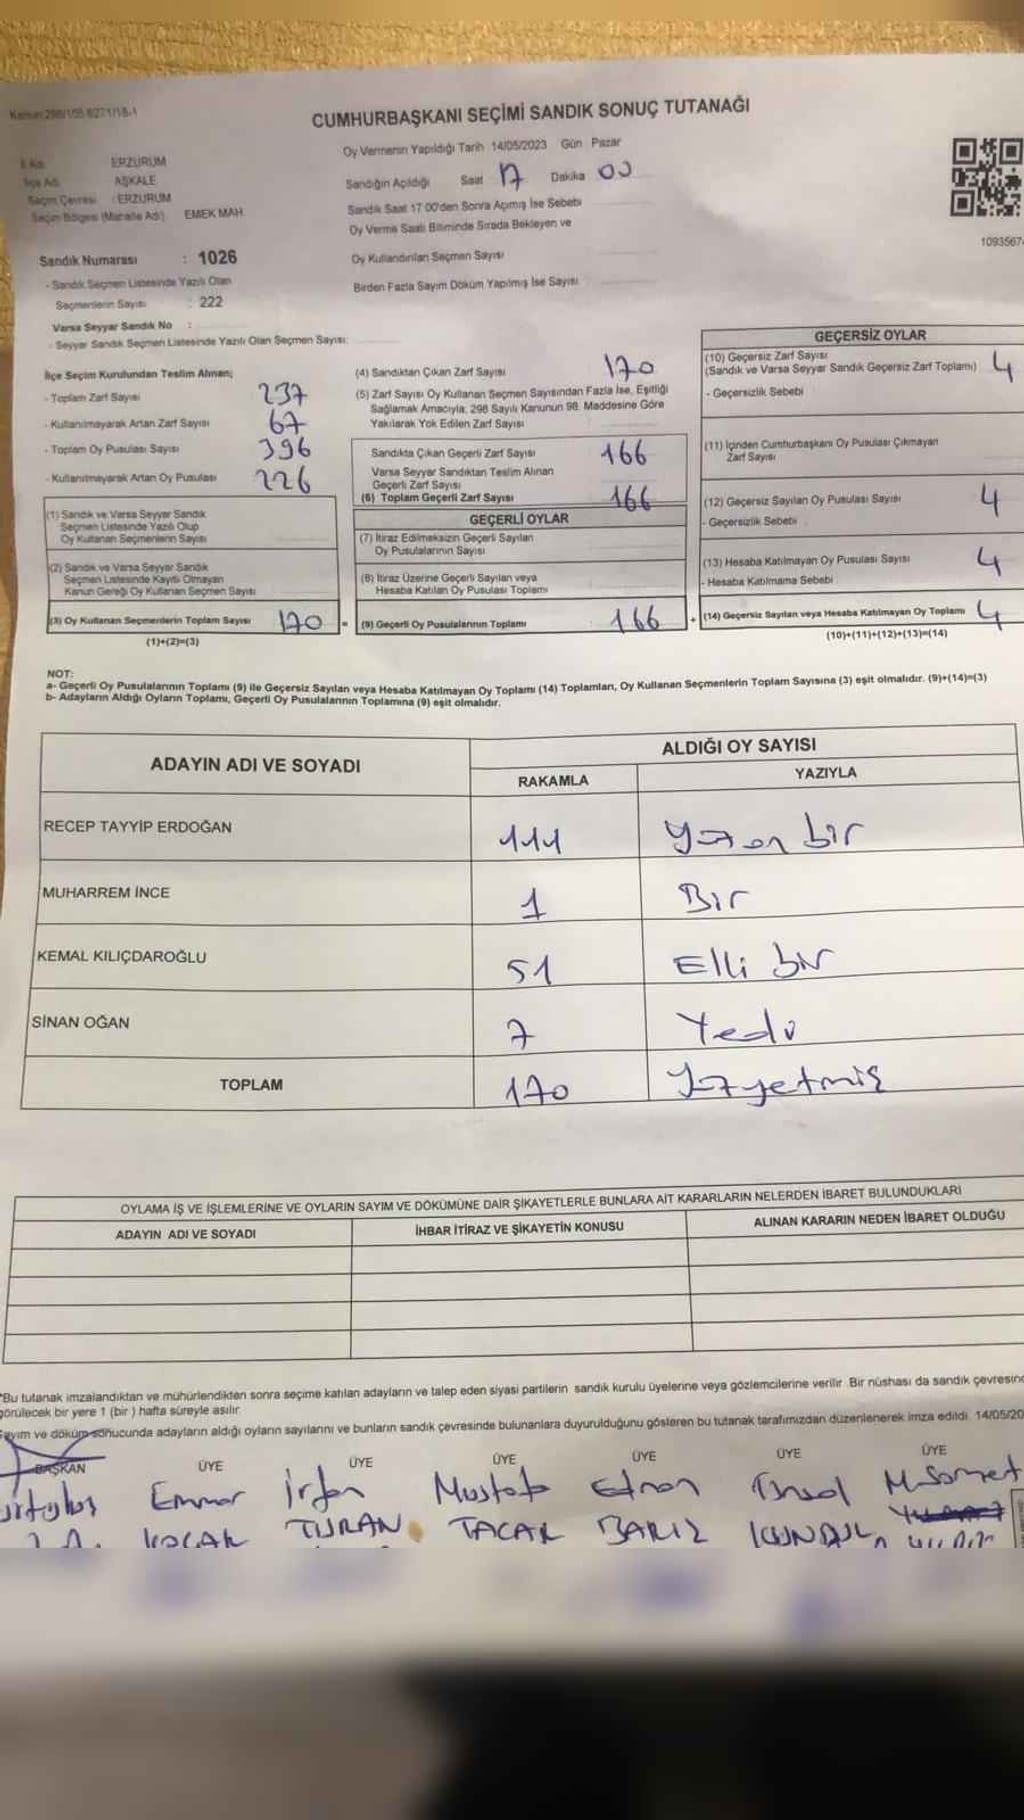 CUMHURBAŞKANI SEÇİMİ SANDIK SONUÇ TUTANAĞI
Oy Vermenin Yapıldığı Tarih 14/05/2023 Gün Pazar
İl Adı ERZURUM
İlçe Adı AŞKALE
Seçim Çevresi : ERZURUM
Seçim Bölgesi (Mahalle Adı) EMEK MAH.
Sandığın Açıldığı Saat 17 Dakika 00
Sandık Saat 17 00'den Sonra Açımış İse Sebebi
Oy Verme Saati Bitiminde Sırada Bekleyen ve
Oy Kullandırılan Seçmen Sayısı
Birden Fazla Sayım Döküm Yapılmış İse Sayısı
1093567
Sandık Numarası : 1026
- Sandık Seçmen Listesinde Yazılı Olan
Seçmenlerin Sayısı : 222
Varsa Seyyar Sandık No :
- Seyyar Sandık Seçmen Listesinde Yazılı Olan Seçmen Sayısı:
İlçe Seçim Kurulundan Teslim Alınan;
- Toplam Zarf Sayısı 237
- Kullanılmayarak Artan Zarf Sayısı 67
- Toplam Oy Pusulası Sayısı 396
- Kullanılmayarak Artan Oy Pusulası 226
(1) Sandık ve Varsa Seyyar Sandık
Seçmen Listesinde Yazılı Olup
Oy Kullanan Seçmenlerin Sayısı
(2) Sandık ve Varsa Seyyar Sandık
Seçmen Listesinde Kayıtlı Olmayan
Kanun Gereği Oy Kullanan Seçmen Sayısı
(3) Oy Kullanan Seçmenlerin Toplam Sayısı 170
(1)+(2)=(3)
(4) Sandıktan Çıkan Zarf Sayısı 170
(5) Zarf Sayısı Oy Kullanan Seçmen Sayısından Fazla İse, Eşitliği
Sağlamak Amacıyla, 298 Sayılı Kanunun 98. Maddesine Göre
Yakılarak Yok Edilen Zarf Sayısı
Sandıkta Çıkan Geçerli Zarf Sayısı 166
Varsa Seyyar Sandıktan Teslim Alınan
Geçerli Zarf Sayısı
(6) Toplam Geçerli Zarf Sayısı 166
GEÇERLİ OYLAR
(7) İtiraz Edilmeksizin Geçerli Sayılan
Oy Pusulalarının Sayısı
(8) İtiraz Üzerine Geçerli Sayılan veya
Hesaba Katılan Oy Pusulası Toplamı
= (9) Geçerli Oy Pusulalarının Toplamı 166
GEÇERSİZ OYLAR
(10) Geçersiz Zarf Sayısı
(Sandık ve Varsa Seyyar Sandık Geçersiz Zarf Toplamı) 4
- Geçersizlik Sebebi
(11) İçinden Cumhurbaşkanı Oy Pusulası Çıkmayan
Zarf Sayısı
(12) Geçersiz Sayılan Oy Pusulası Sayısı 4
- Geçersizlik Sebebi
(13) Hesaba Katılmayan Oy Pusulası Sayısı 4
- Hesaba Katılmama Sebebi
+ (14) Geçersiz Sayılan veya Hesaba Katılmayan Oy Toplamı 4
(10)+(11)+(12)+(13)=(14)
NOT:
a- Geçerli Oy Pusulalarının Toplamı (9) ile Geçersiz Sayılan veya Hesaba Katılmayan Oy Toplamı (14) Toplamları, Oy Kullanan Seçmenlerin Toplam Sayısına (3) eşit olmalıdır. (9)+(14)=(3)
b- Adayların Aldığı Oyların Toplamı, Geçerli Oy Pusulalarının Toplamına (9) eşit olmalıdır.
ADAYIN ADI VE SOYADI ALDIĞI OY SAYISI
RAKAMLA YAZIYLA
RECEP TAYYİP ERDOĞAN 111 Yüz on bir
MUHARREM İNCE 1 Bir
KEMAL KILIÇDAROĞLU 51 Elli bir
SİNAN OĞAN 7 Yedi
TOPLAM 170 Yüzyetmiş
OYLAMA İŞ VE İŞLEMLERİNE VE OYLARIN SAYIM VE DÖKÜMÜNE DAİR ŞİKAYETLERLE BUNLARA AİT KARARLARIN NELERDEN İBARET BULUNDUKLARI
ADAYIN ADI VE SOYADI İHBAR İTİRAZ VE ŞİKAYETİN KONUSU ALINAN KARARIN NEDEN İBARET OLDUĞU
*Bu tutanak imzalandıktan ve mühürlendikten sonra seçime katılan adayların ve talep eden siyasi partilerin sandık kurulu üyelerine veya gözlemcilerine verilir. Bir nüshası da sandık çevresinde
görülecek bir yere 1 (bir ) hafta süreyle asılır.
Sayım ve döküm sonucunda adayların aldığı oyların sayılarını ve bunların sandık çevresinde bulunanlara duyurulduğunu gösteren bu tutanak tarafımızdan düzenlenerek imza edildi. 14/05/20
BAŞKAN ÜYE ÜYE ÜYE ÜYE ÜYE ÜYE
İrfan Mustafa M.Samet
KOÇAK TURAN TACAR